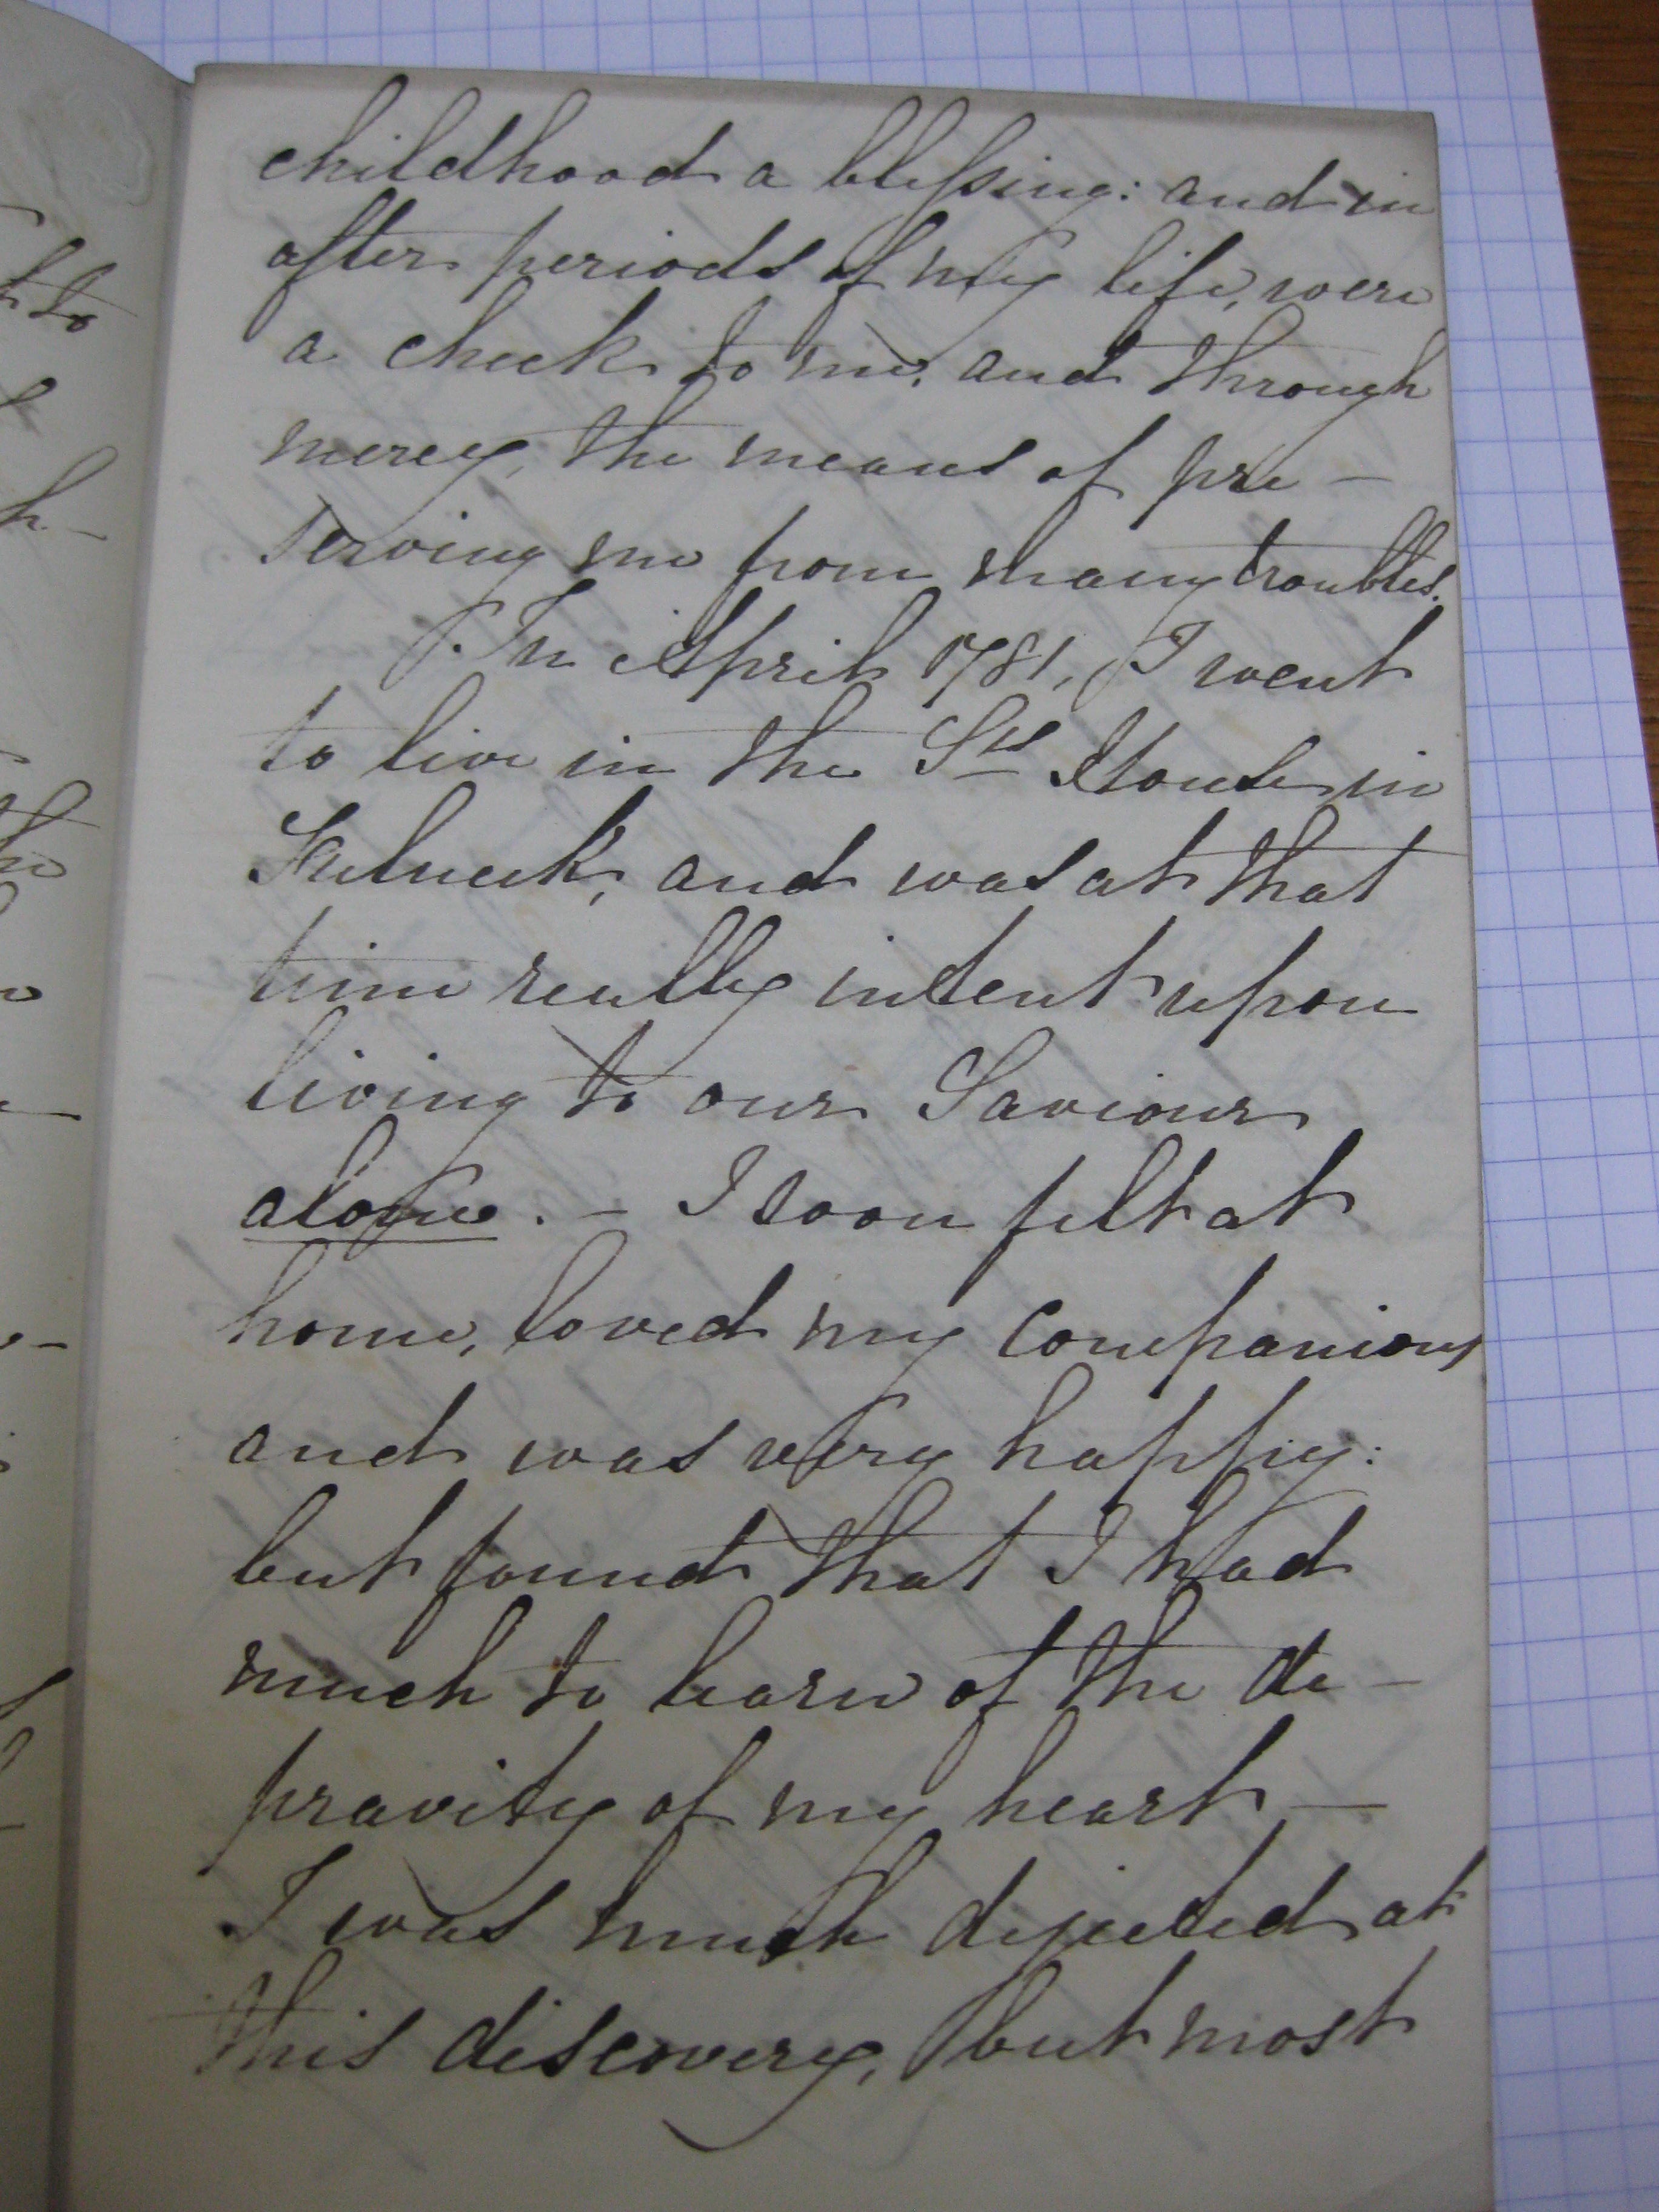 childhood a blessing: and in
after periods of my life, were
a check to me, and through
mercy, the means of pre-
serving me from many troubles.
In April 1781, I went
to live in the Srs House in
Fulneck, and was at that
time really intent upon
living to our Saviour
alone. - I soon felt at
home, loved my Companions
and was very happy:
but found that I had
much to learn of the de-
pravity of my heart -
I was much dejected at
this discovery, but most